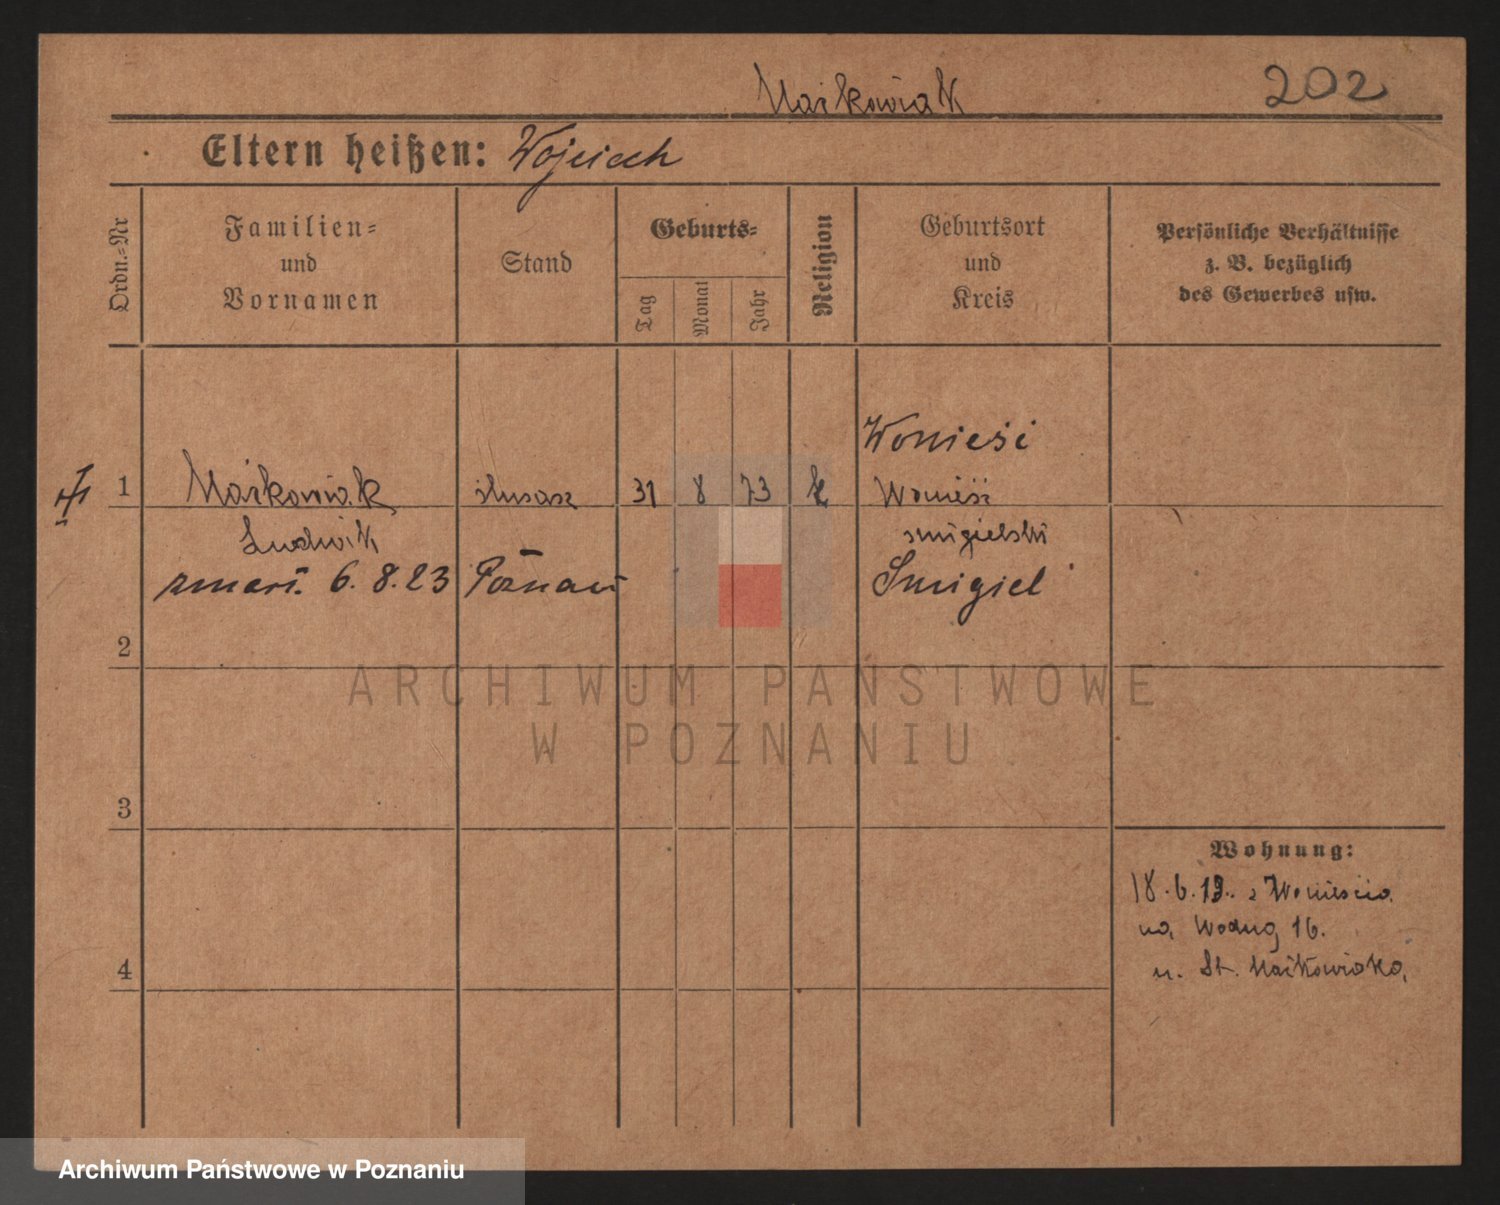 Maćkowiak
202
Eltern heißen: Wojciech
Ordn.-Nr
Familien-
und
Vornamen
Stand
Geburts-
Tag
Monat
Jahr
Religion
Geburtsort
und
Kreis
Persönliche Verhältnisse
z. B. bezüglich
des Gewerbes usw.
Wonieść
1 Maćkowiak ślusarz 31 8 73 k Wonieść
Ludwik śmigielski
zmarł. 6.8.23 Poznań Śmigiel
2
3
4
Wohnung:
18.6.19. z Wonieścia
na Wodną 16.
u. St. Maćkowiaka,
ARCHIWUM PAŃSTWOWE
W POZNANIU
Archiwum Państwowe w Poznaniu